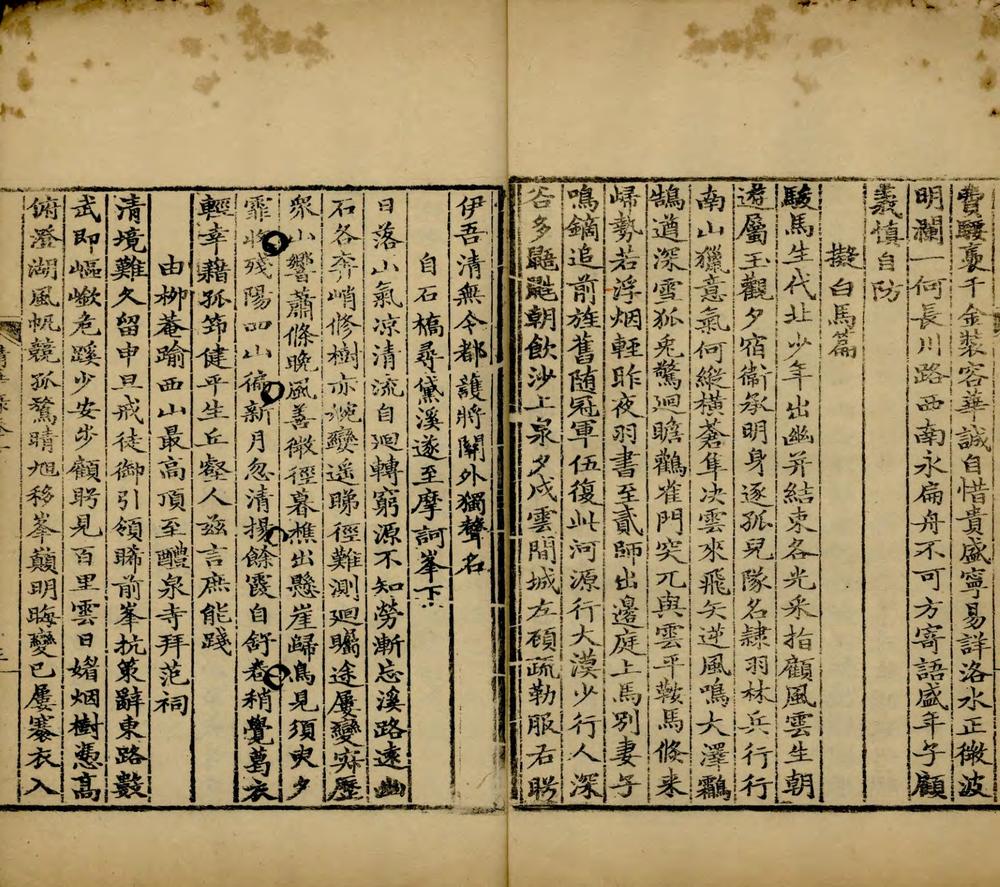 費騕褭千金裝容華誠自惜貴盛寧易詳洛水正微波
明瀾一何長川路西南永扁舟不可方寄語盛年子顧
義慎自防
擬白馬篇
駿馬生代北少年出幽并結束各光采指顧風雲生朝
遊屬玉觀夕宿衛承明身逐孤兒隊名隸羽林兵行行
南山獵意氣何縱橫蒼隼决雲來飛矢逆風鳴大澤霜
鵠遵深雪狐兎驚廻瞻鸛雀門突兀與雲平鞍馬倐来
歸勢若浮烟輕昨夜羽書至貳師出邊庭上馬別妻子
鳴鏑追前旌舊随冠軍伍復此河源行大漠少行人深
谷多鼯鼪朝飲沙上泉夕戍雲間城左頋疏勒服右盻
伊吾清無令都護將關外獨聲名
自石橋尋黛溪遂至摩訶峯下
日落山氣凉清流自廻轉窮源不知勞漸忘溪路遠幽
石各奔峭修樹亦婉孌遥睇徑難測廻矚途屢變寂歷
衆山響蕭條晚風善微徑暮樵出懸崖歸鳥見須臾夕
霏收殘陽四山徧新月忽清揚餘霞自舒卷稍覺葛衣
輕幸藉孤笻健平生丘壑人兹言庶能踐
由柳菴踰西山最高頂至醴泉寺拜范祠
清境難久留申旦戒徒御引領睎前峯抗策辭東路數
武即嶇嶔危蹊少安步顧盻見百里雲日媚烟樹憑高
俯澄湖風帆競孤騖晴旭移峯巔明晦變已屢褰衣入